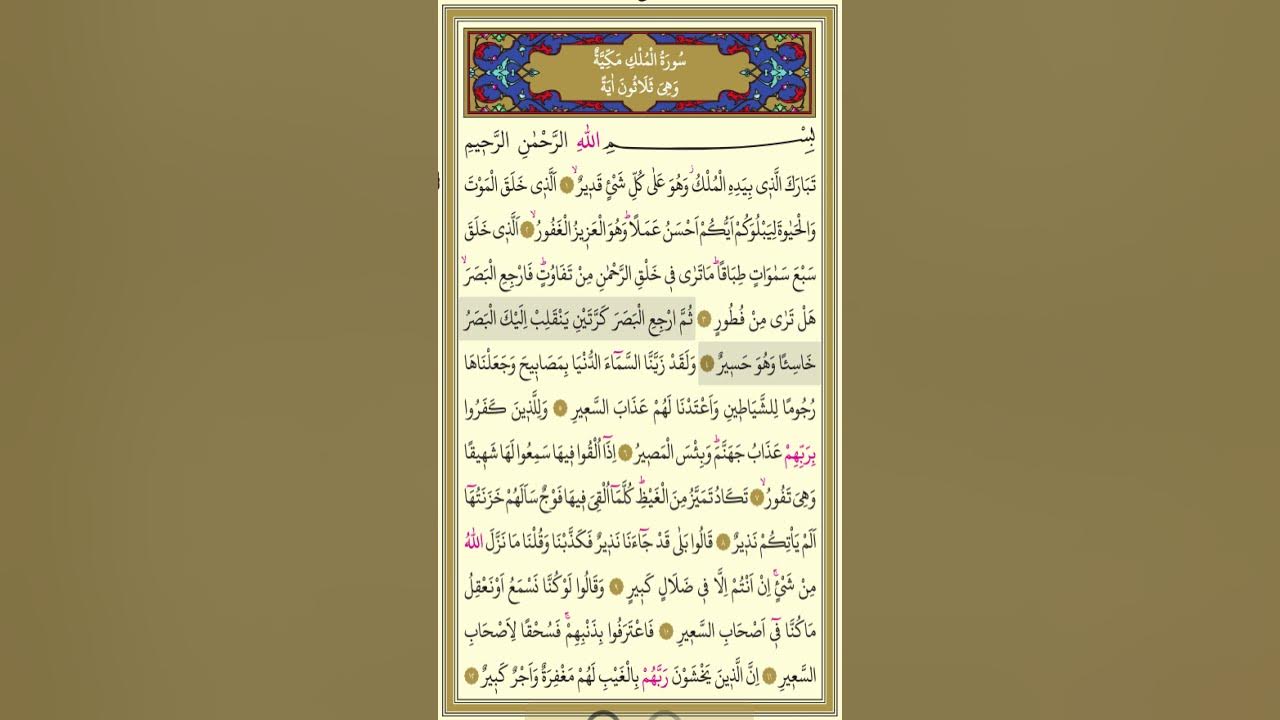 سُورَةُ الْمُلْكِ مَكِّيَّةٌ
وَهِىَ ثَلَاثُونَ اٰيَةً
بِسْمِ اللّٰهِ الرَّحْمٰنِ الرَّحٖيمِ
تَبَارَكَ الَّذٖى بِيَدِهِ الْمُلْكُۘ وَهُوَ عَلٰى كُلِّ شَىْءٍ قَدٖيرٌۙ ﴿١﴾ اَلَّذٖى خَلَقَ الْمَوْتَ
وَالْحَيٰوةَ لِيَبْلُوَكُمْ اَيُّكُمْ اَحْسَنُ عَمَلًاؕ وَهُوَ الْعَزٖيزُ الْغَفُورُۙ ﴿٢﴾ اَلَّذٖى خَلَقَ
سَبْعَ سَمٰوَاتٍ طِبَاقًاؕ مَا تَرٰى فٖى خَلْقِ الرَّحْمٰنِ مِنْ تَفَاوُتٍؕ فَارْجِعِ الْبَصَرَۙ
هَلْ تَرٰى مِنْ فُطُورٍ ﴿٣﴾ ثُمَّ ارْجِعِ الْبَصَرَ كَرَّتَيْنِ يَنْقَلِبْ اِلَيْكَ الْبَصَرُ
خَاسِئًا وَهُوَ حَسٖيرٌ ﴿٤﴾ وَلَقَدْ زَيَّنَّا السَّمَٓاءَ الدُّنْيَا بِمَصَابٖيحَ وَجَعَلْنَاهَا
رُجُومًا لِلشَّيَاطٖينِ وَاَعْتَدْنَا لَهُمْ عَذَابَ السَّعٖيرِ ﴿٥﴾ وَلِلَّذٖينَ كَفَرُوا
بِرَبِّهِمْ عَذَابُ جَهَنَّمَؕ وَبِئْسَ الْمَصٖيرُ ﴿٦﴾ اِذَٓا اُلْقُوا فٖيهَا سَمِعُوا لَهَا شَهٖيقًا
وَهِىَ تَفُورُۙ ﴿٧﴾ تَكَادُ تَمَيَّزُ مِنَ الْغَيْظِؕ كُلَّمَٓا اُلْقِىَ فٖيهَا فَوْجٌ سَاَلَهُمْ خَزَنَتُهَٓا
اَلَمْ يَاْتِكُمْ نَذٖيرٌ ﴿٨﴾ قَالُوا بَلٰى قَدْ جَٓاءَنَا نَذٖيرٌ فَكَذَّبْنَا وَقُلْنَا مَا نَزَّلَ اللّٰهُ
مِنْ شَىْءٍۚ اِنْ اَنْتُمْ اِلَّا فٖى ضَلَالٍ كَبٖيرٍ ﴿٩﴾ وَقَالُوا لَوْ كُنَّا نَسْمَعُ اَوْ نَعْقِلُ
مَا كُنَّا فٖٓى اَصْحَابِ السَّعٖيرِ ﴿١٠﴾ فَاعْتَرَفُوا بِذَنْبِهِمْۚ فَسُحْقًا لِاَصْحَابِ
السَّعٖيرِ ﴿١١﴾ اِنَّ الَّذٖينَ يَخْشَوْنَ رَبَّهُمْ بِالْغَيْبِ لَهُمْ مَغْفِرَةٌ وَاَجْرٌ كَبٖيرٌ ﴿١٢﴾